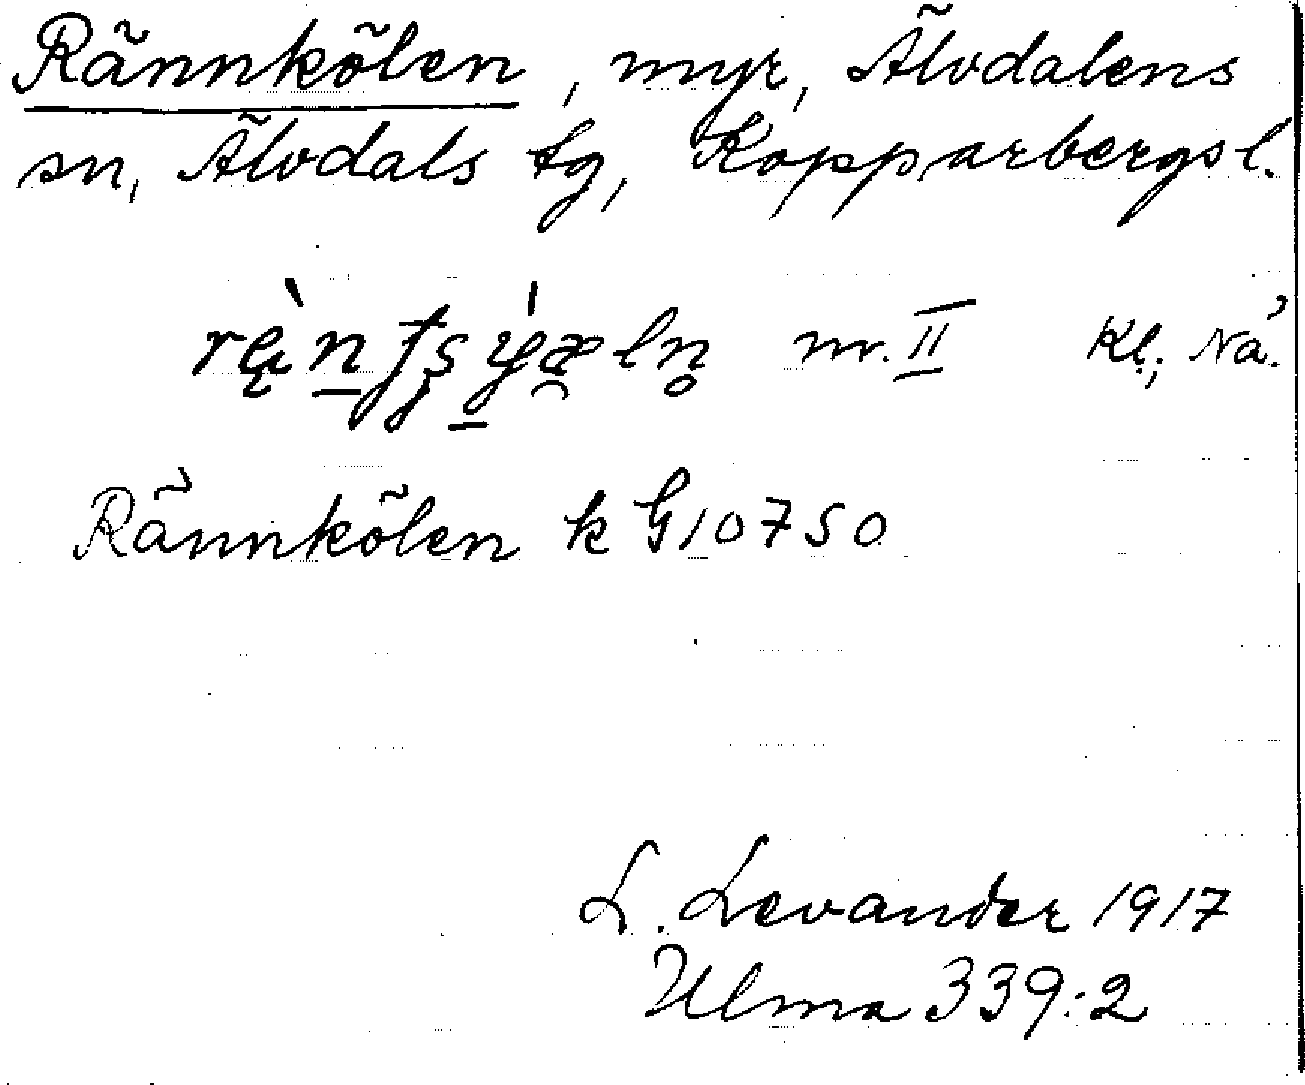 Rännkölen, myr, Älvdalens
sn, Älvdals tg, Kopparbergs l.
nr. II Kl; Nå.
Rännkölen k G10750
L. Levander 1917
Ulma 339:2